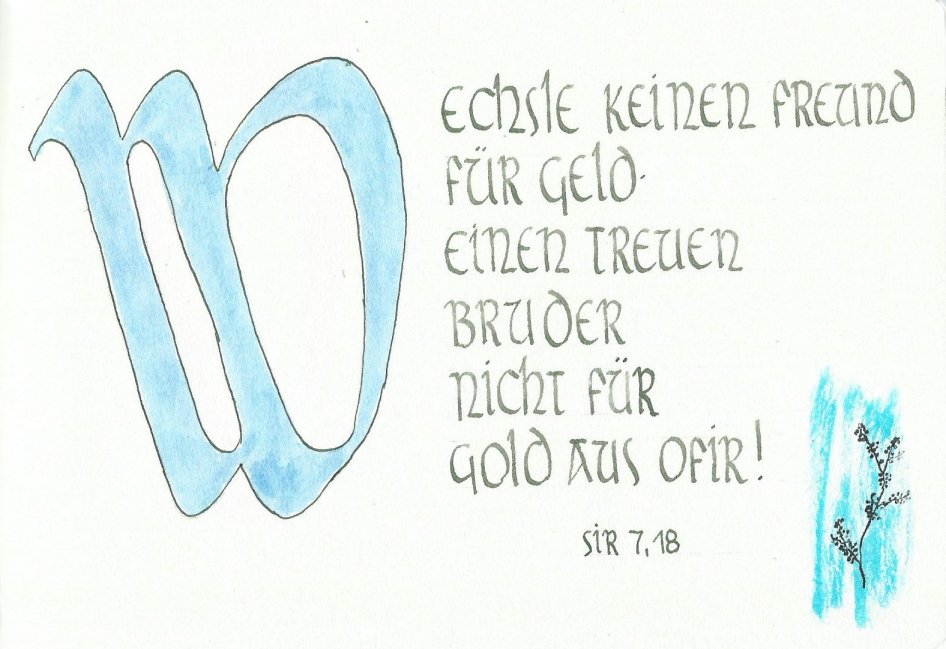 Wechsle keinen Freund
für Geld.
einen treuen
Bruder
nicht für
Gold aus Ofir!
Sir 7,18